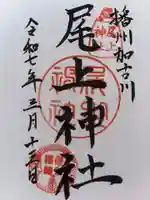 播州加古川
尾上神社
令和七年三月十三日